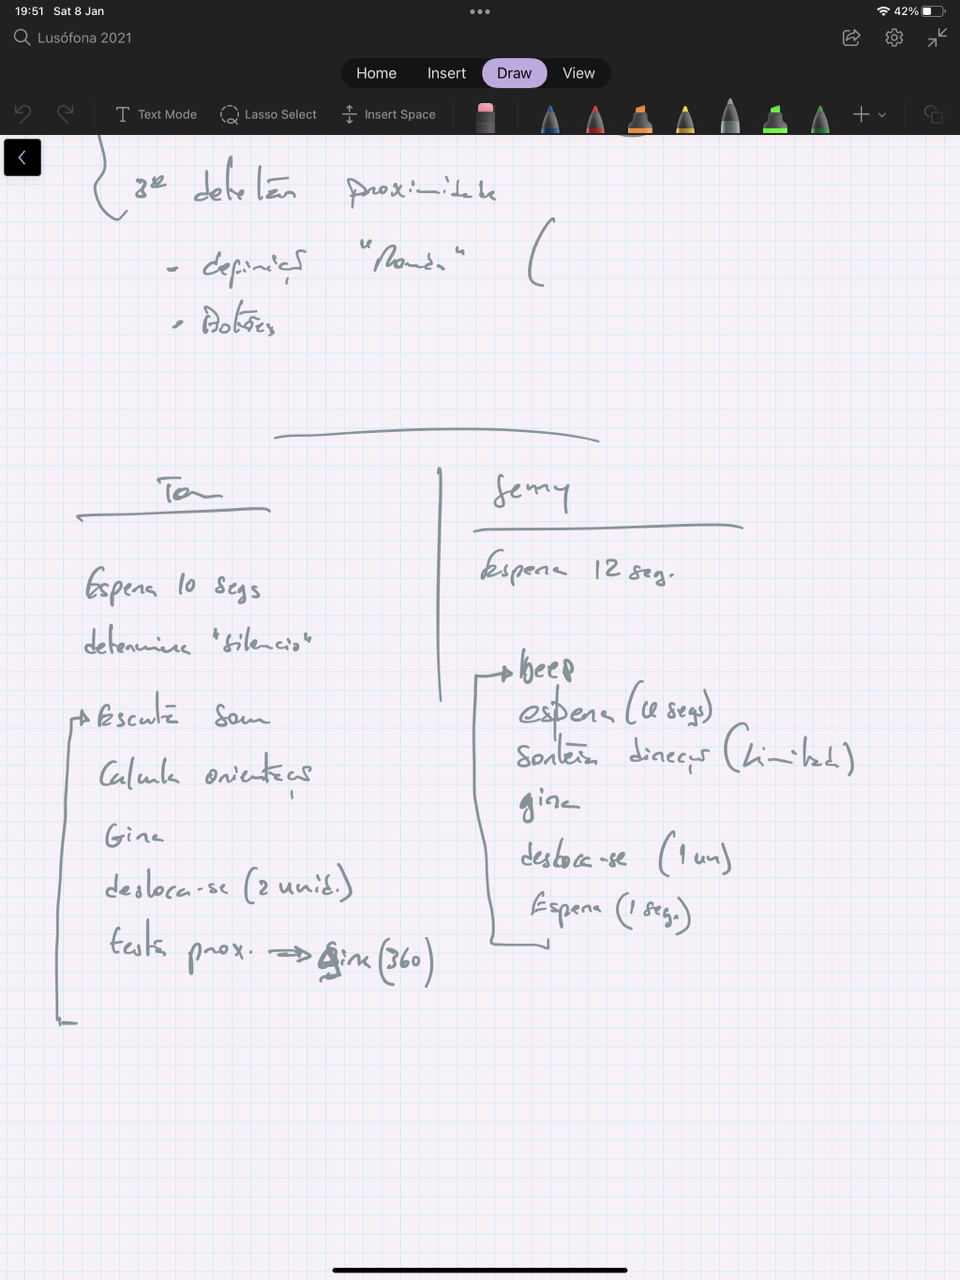 19:51 Sat 8 Jan
42%
Lusófona 2021
Home Insert Draw View
Text Mode Lasso Select Insert Space
proximidade
- definição
• Botões
Tom
Espera 10 segs
determina "silencio"
Escuta Som
Calcula orientação
Gira
desloca-se (2 unid.)
testa prox. ⇒ Gira (360)
Jerry
Espera 12 seg.
beep
espera (4 segs)
sorteia direcção (Limitada)
gira
desloca-se (1 un)
Espera (1 seg.)